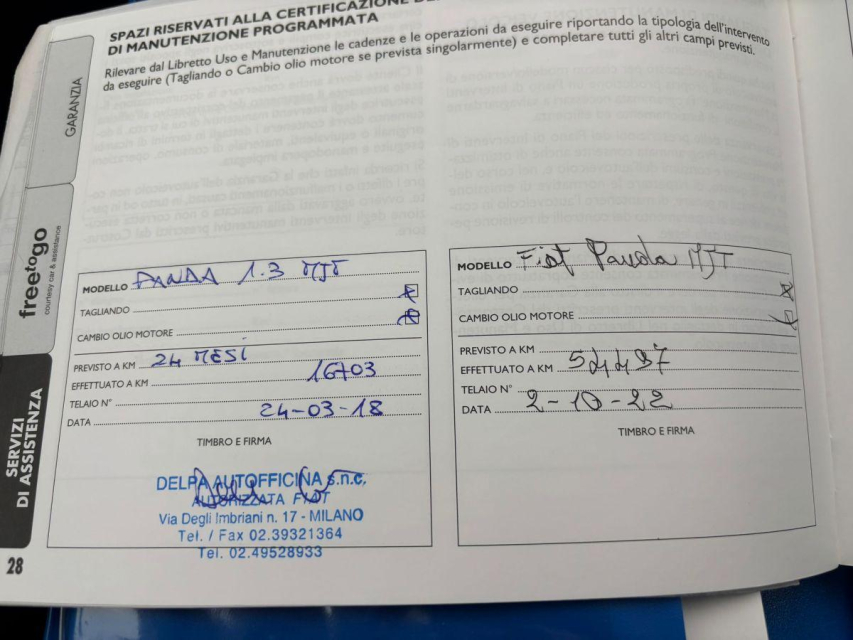 SPAZI RISERVATI ALLA CERTIFICAZIONE DE
DI MANUTENZIONE PROGRAMMATA
Rilevare dal Libretto Uso e Manutenzione le cadenze e le operazioni da eseguire riportando la tipologia dell'intervento
da eseguire (Tagliando o Cambio olio motore se prevista singolarmente) e completare tutti gli altri campi previsti.
GARANZIA
freetogo
courtesy car & assistance
SERVIZI
DI ASSISTENZA
MODELLO PANDA 1.3 MJT
TAGLIANDO
CAMBIO OLIO MOTORE
PREVISTO A KM 24 MESI
EFFETTUATO A KM 16703
TELAIO N°
DATA 24-03-18
TIMBRO E FIRMA
DELPA AUTOFFICINA s.n.c.
AUTORIZZATA FIAT
Via Degli Imbriani n. 17 - MILANO
Tel. / Fax 02.39321364
Tel. 02.49528933
MODELLO Fiat Panda MJT
TAGLIANDO
CAMBIO OLIO MOTORE
PREVISTO A KM
EFFETTUATO A KM 54497
TELAIO N°
DATA 2-10-22
TIMBRO E FIRMA
28